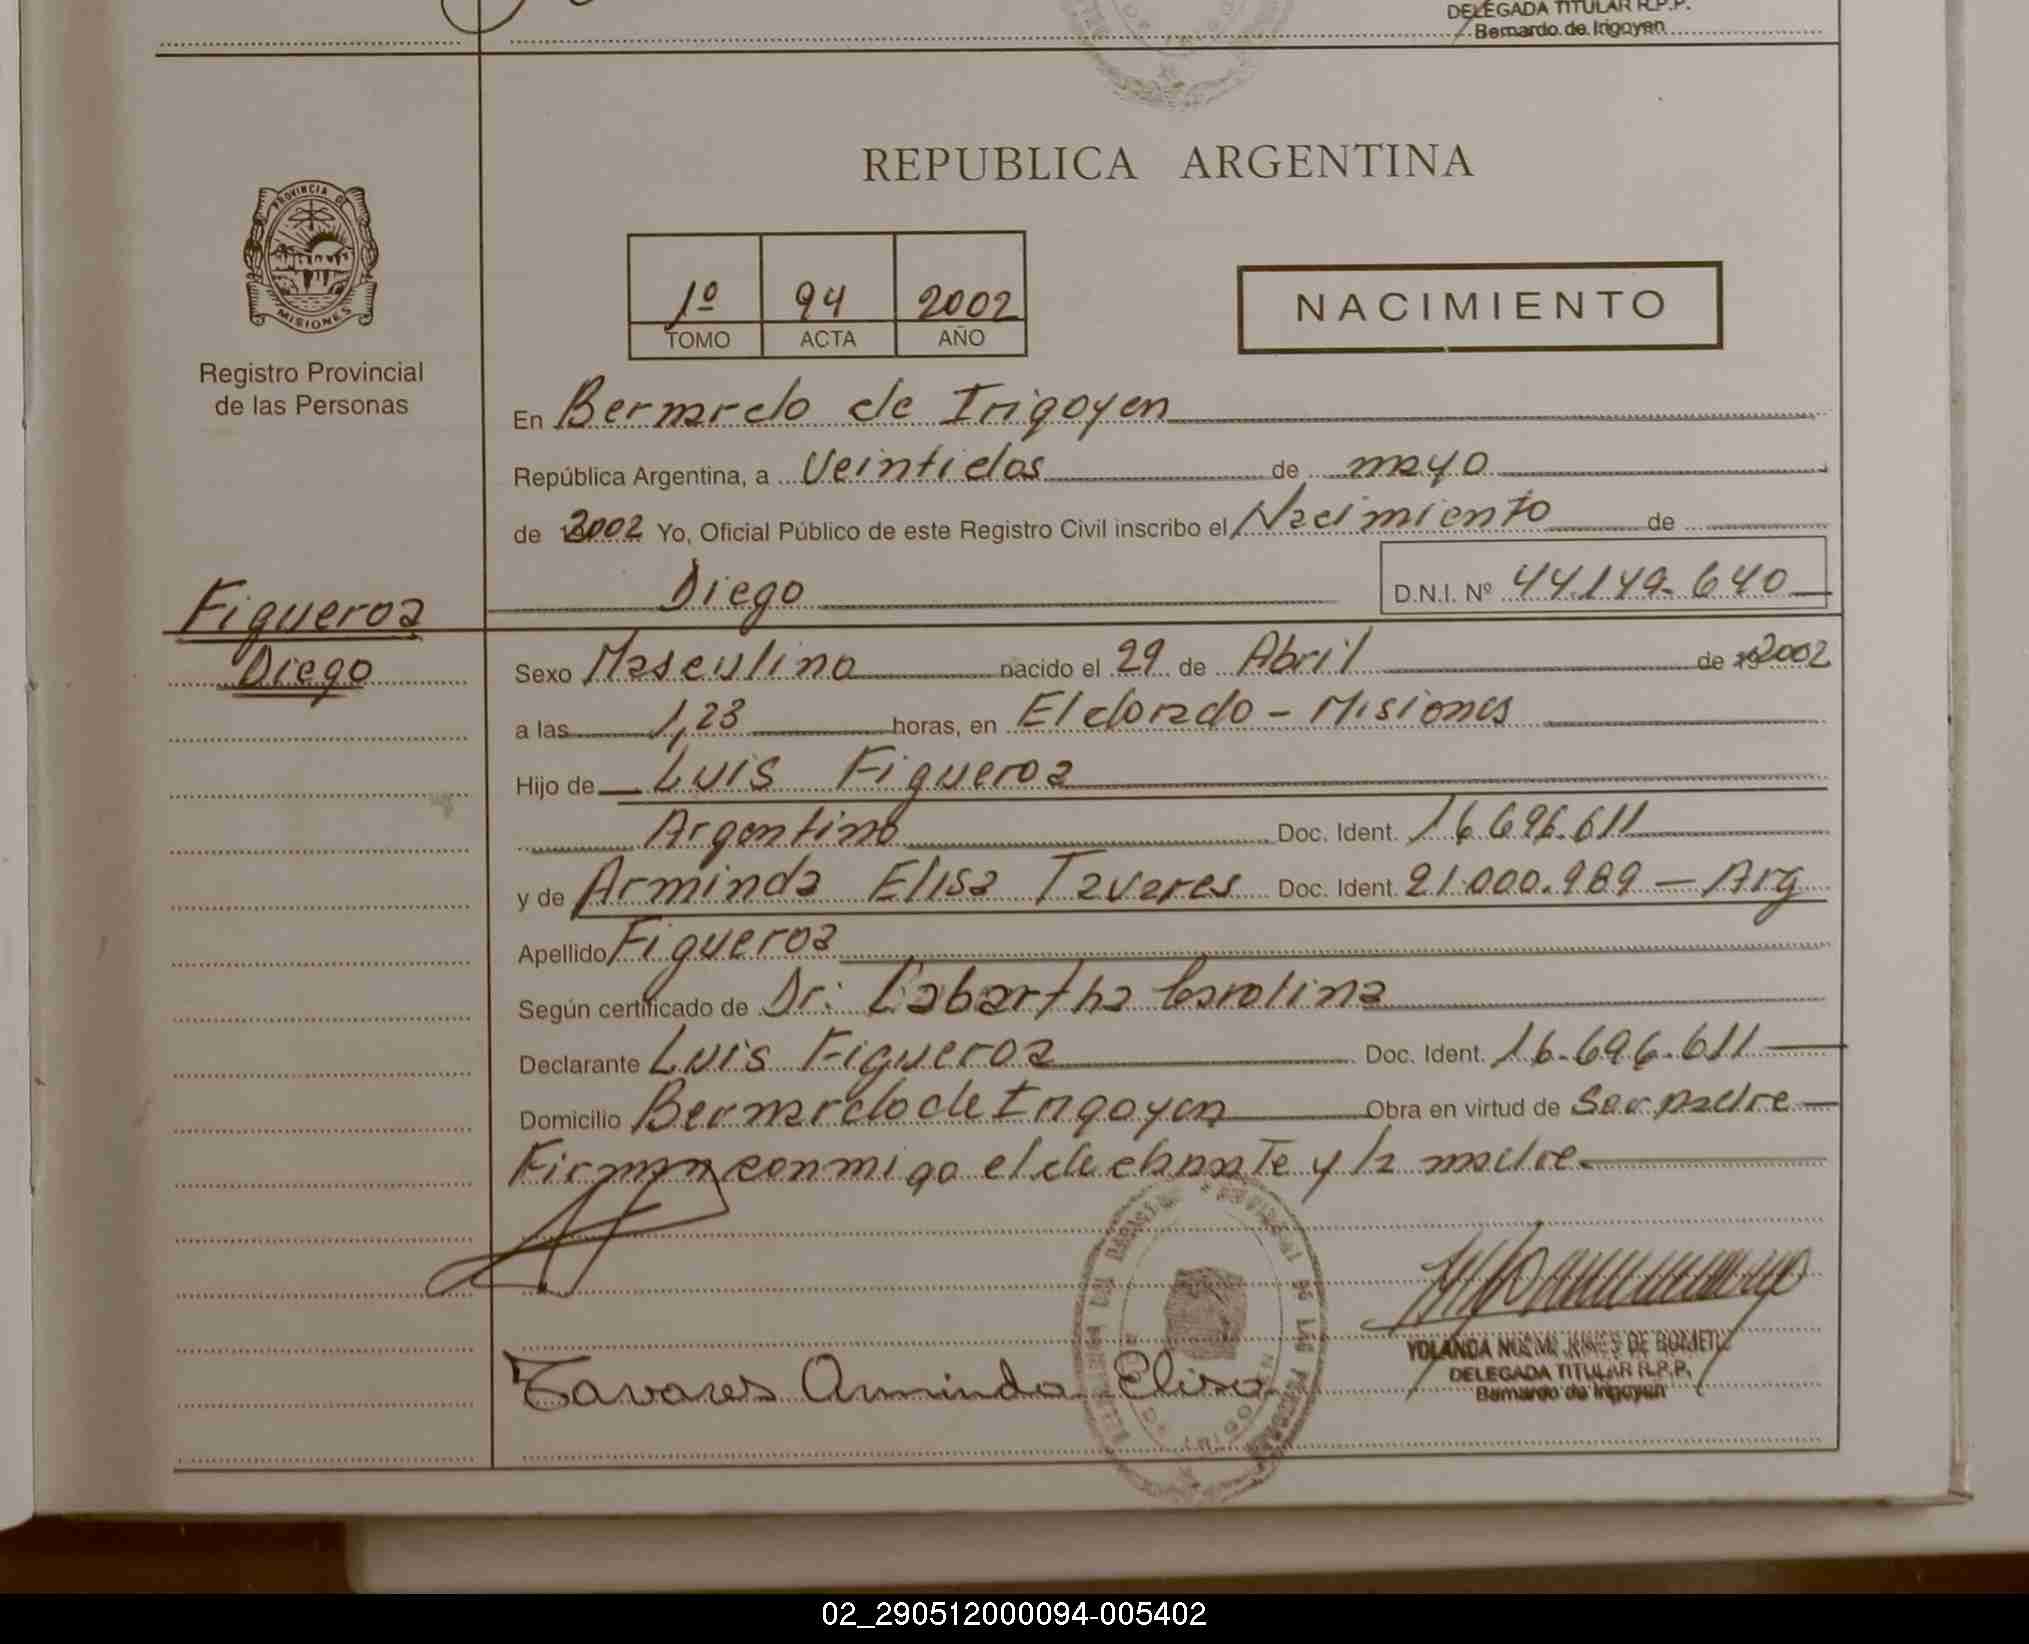 DELEGADA TITULAR R.P.P.
Bernardo de Irigoyen
REPUBLICA ARGENTINA
PROVINCIA DE
MISIONES
1º 94 2002
TOMO ACTA AÑO
NACIMIENTO
Registro Provincial
de las Personas
En Bernardo de Irigoyen
República Argentina, a Veintidos de mayo
de 2002 Yo, Oficial Público de este Registro Civil inscribo el Nacimiento de
Diego D.N.I. Nº 44.149.640
Figueroa
Diego
Sexo Masculino nacido el 29 de Abril de 2002
a las 1,23 horas, en Eldorado - Misiones
Hijo de Luis Figueroa
Argentino Doc. Ident. 16.696.611
y de Arminda Elisa Tavares Doc. Ident. 21.000.989 - Arg
Apellido Figueroa
Según certificado de Dr: Labartha Carolina
Declarante Luis Figueroa Doc. Ident. 16.696.611
Domicilio Bernardo de Irigoyen Obra en virtud de Ser padre
Firman conmigo el declarante y la madre.
Tavares Arminda Elisa
YOLANDA DE
DELEGADA TITULAR R.P.P.
Bernardo de Irigoyen
02_290512000094-005402